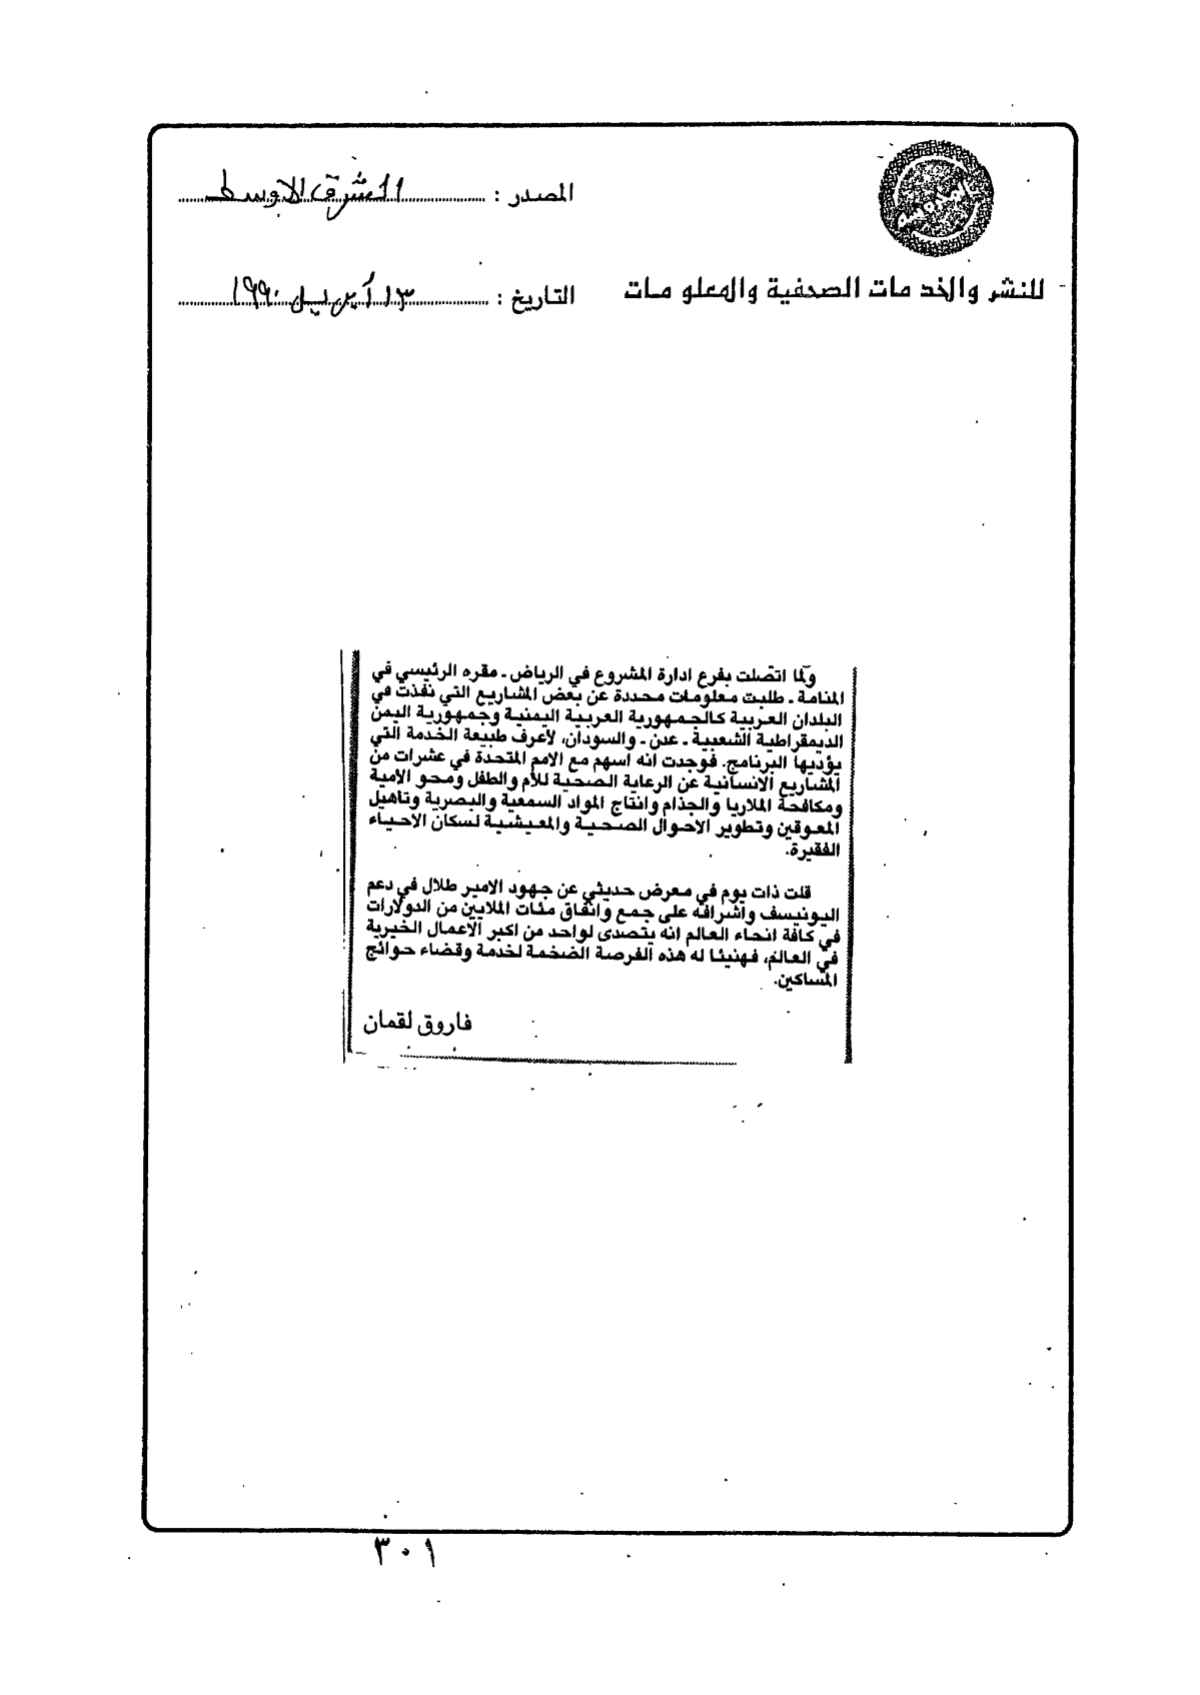 المصدر : الشرق الاوسط
للنشر والخدمات الصحفية والمعلومات
التاريخ : ١٣ أبريل ١٩٩٠
ولما اتصلت بفرع ادارة المشروع في الرياض ـ مقره الرئيسي في
المنامة ـ طلبت معلومات محددة عن بعض المشاريع التي نفذت في
البلدان العربية كالجمهورية العربية اليمنية وجمهورية اليمن
الديمقراطية الشعبية ـ عدن ـ والسودان، لأعرف طبيعة الخدمة التي
يؤديها البرنامج. فوجدت انه اسهم مع الامم المتحدة في عشرات من
المشاريع الانسانية عن الرعاية الصحية للأم والطفل ومحو الامية
ومكافحة الملاريا والجذام وانتاج المواد السمعية والبصرية وتأهيل
المعوقين وتطوير الاحوال الصحية والمعيشية لسكان الاحياء
الفقيرة.
قلت ذات يوم في معرض حديثي عن جهود الامير طلال في دعم
اليونيسف واشرافه على جمع وانفاق مئات الملايين من الدولارات
في كافة انحاء العالم انه يتصدى لواحد من اكبر الاعمال الخيرية
في العالم، فهنيئا له هذه الفرصة الضخمة لخدمة وقضاء حوائج
المساكين.
فاروق لقمان
٣٠١